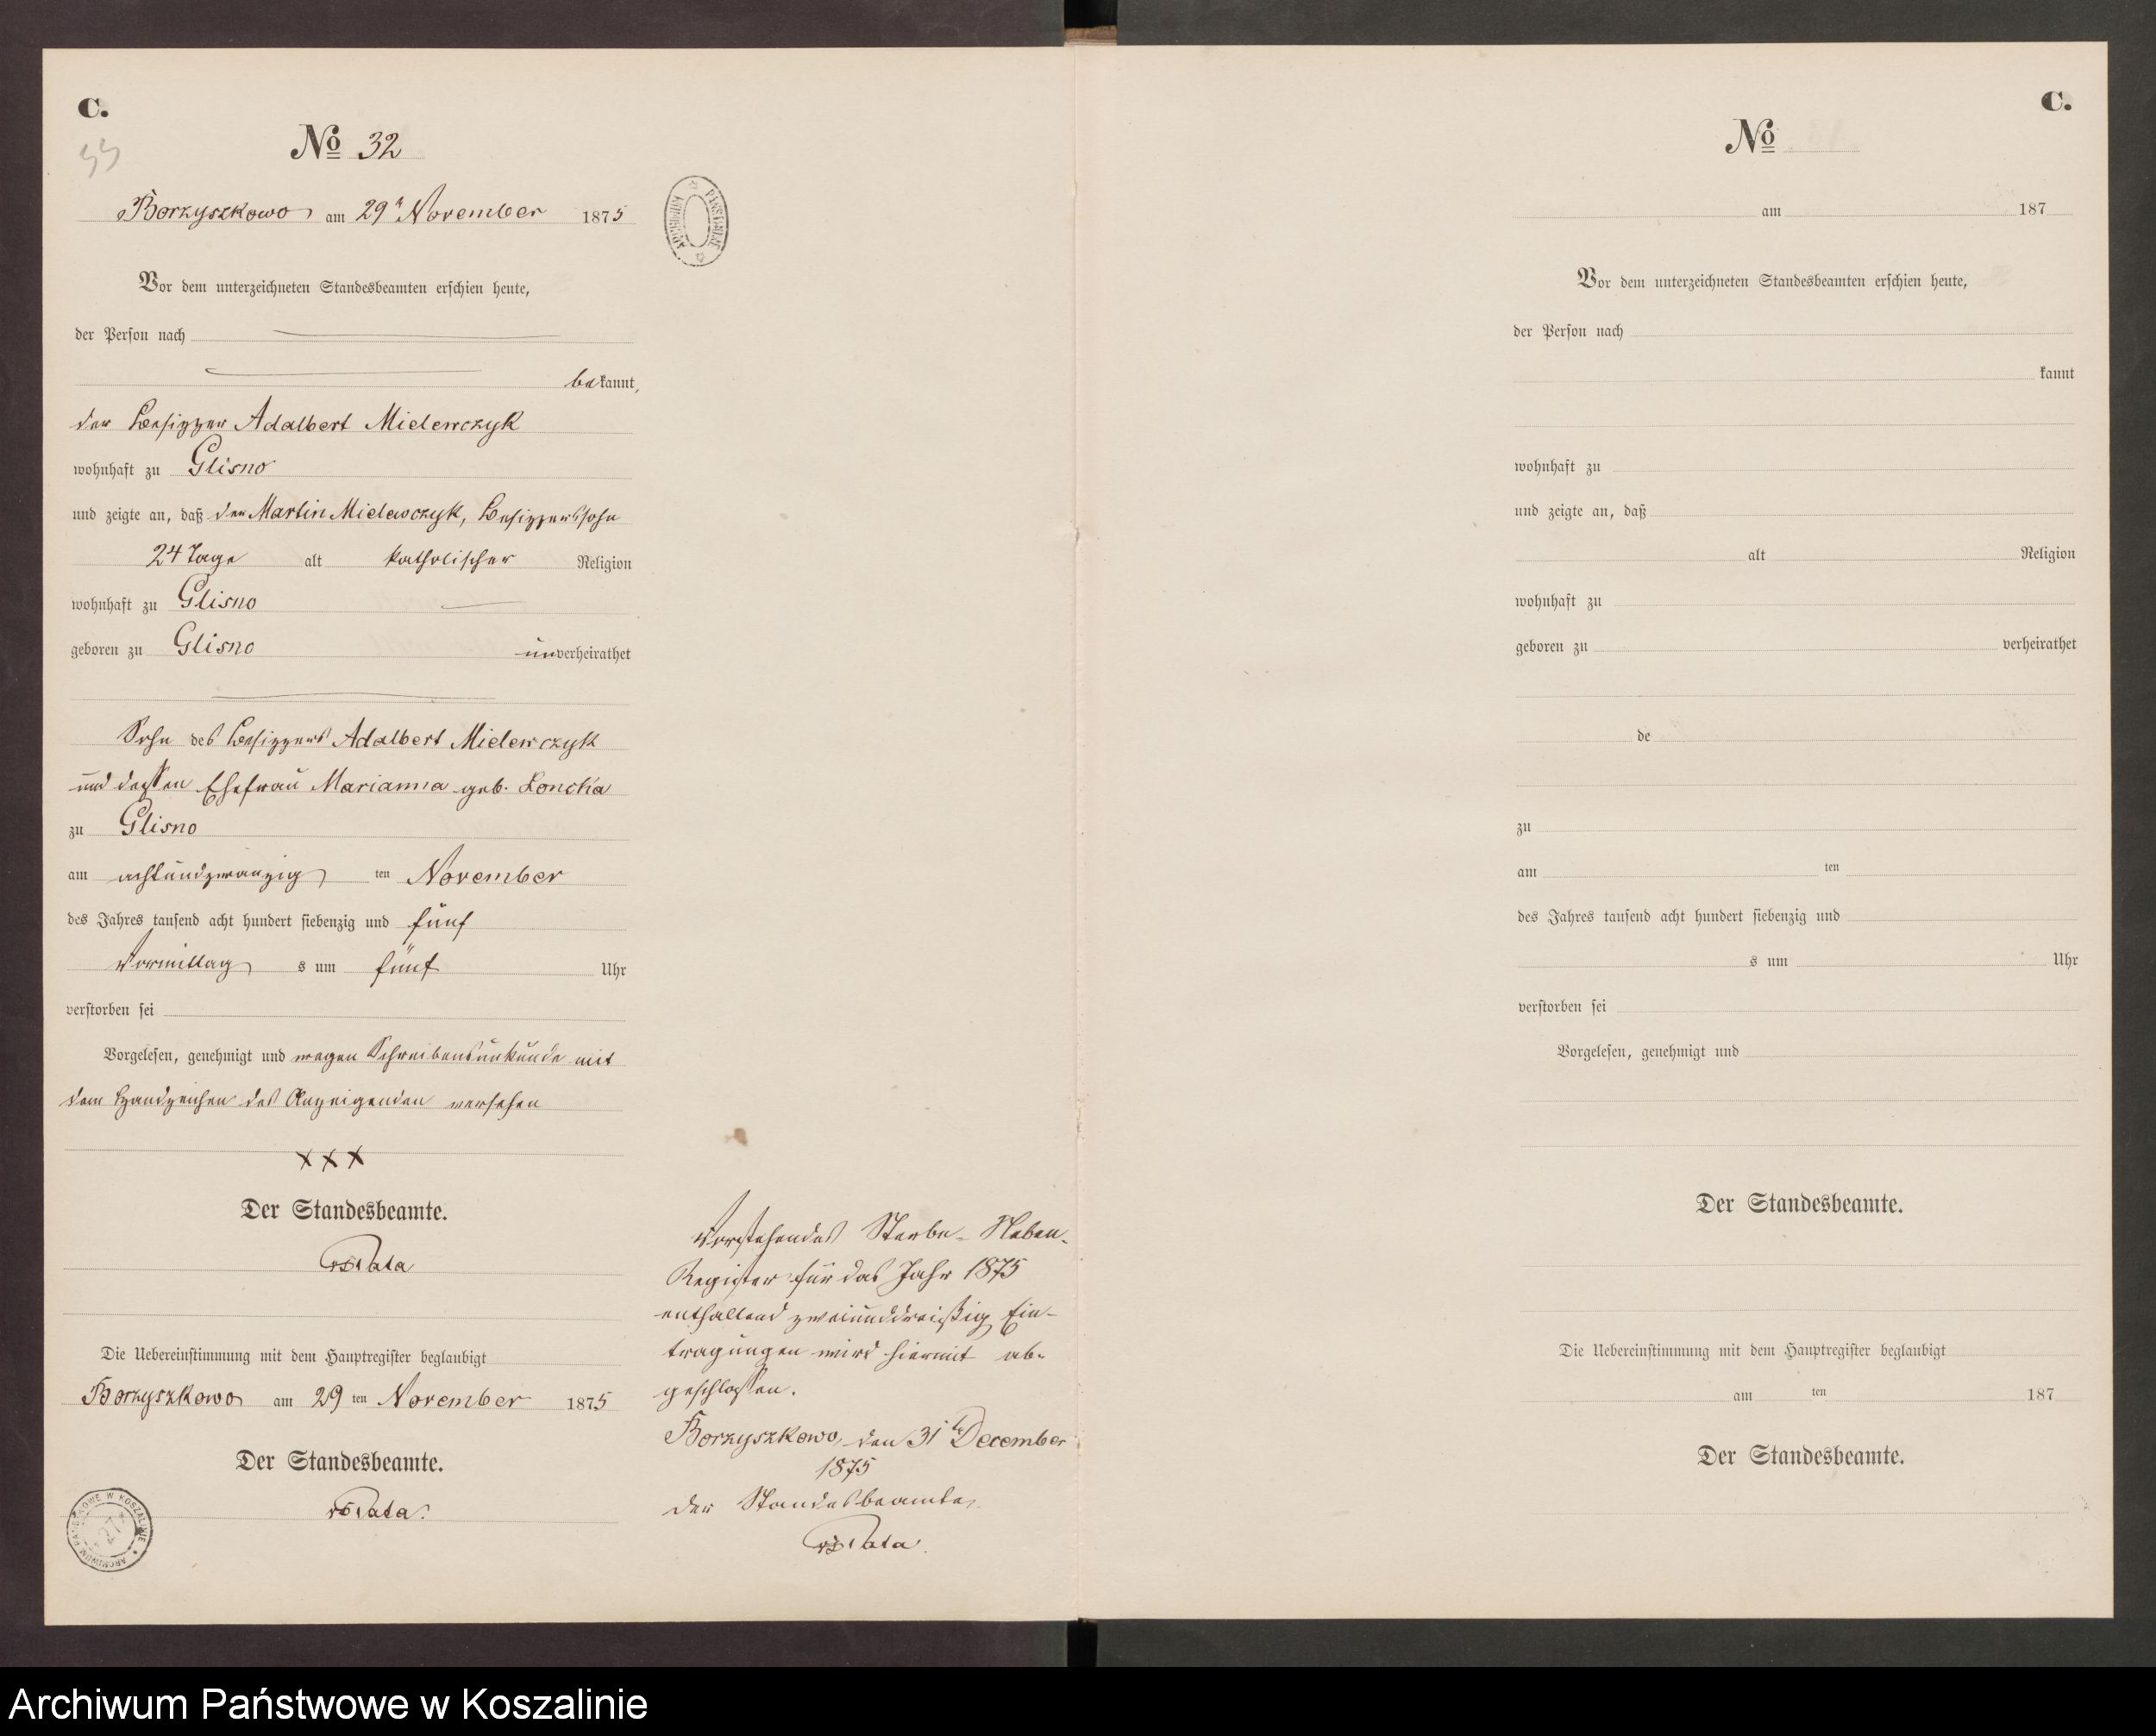 C.
No 32
Borzyszkowo am 29n November 1875
Vor dem unterzeichneten Standesbeamten erschien heute,
der Person nach
bekannt,
der Besitzer Adalbert Mielewczyk
wohnhaft zu Glisno
und zeigte an, daß der Martin Mielewczyk, Besitzerssohn
24 Tage alt katholischer Religion
wohnhaft zu Glisno
geboren zu Glisno unverheirathet
Sohn des Besitzers Adalbert Mielewczyk
und dessen Ehefrau Marianna geb. Loncka
zu Glisno
am achtundzwanzig ten November
des Jahres tausend acht hundert siebenzig und fünf
Vormittag s um fünf Uhr
verstorben sei
Vorgelesen, genehmigt und wegen Schreibensunkunde mit
dem Handzeichen des Anzeigenden versehen
XXX
Der Standesbeamte.
Die Uebereinstimmung mit dem Hauptregister beglaubigt
Borzyszkowo am 29 ten November 1875
Der Standesbeamte.
ARCHIWUM PAŃSTWOWE W KOSZALINIE
27
ARCHIWUM PAŃSTWOWE
Vorstehendes Sterbe-Neben-
Register für das Jahr 1875
enthaltend zweiunddreißig Ein-
tragungen wird hiermit ab-
geschlossen.
Borzyszkowo, den 31t December
1875
Der Standesbeamte,
C.
No
am 187
Vor dem unterzeichneten Standesbeamten erschien heute,
der Person nach
kannt
wohnhaft zu
und zeigte an, daß
alt Religion
wohnhaft zu
geboren zu verheirathet
de
zu
am ten
des Jahres tausend acht hundert siebenzig und
s um Uhr
verstorben sei
Vorgelesen, genehmigt und
Der Standesbeamte.
Die Uebereinstimmung mit dem Hauptregister beglaubigt
am ten 187
Der Standesbeamte.
Archiwum Państwowe w Koszalinie